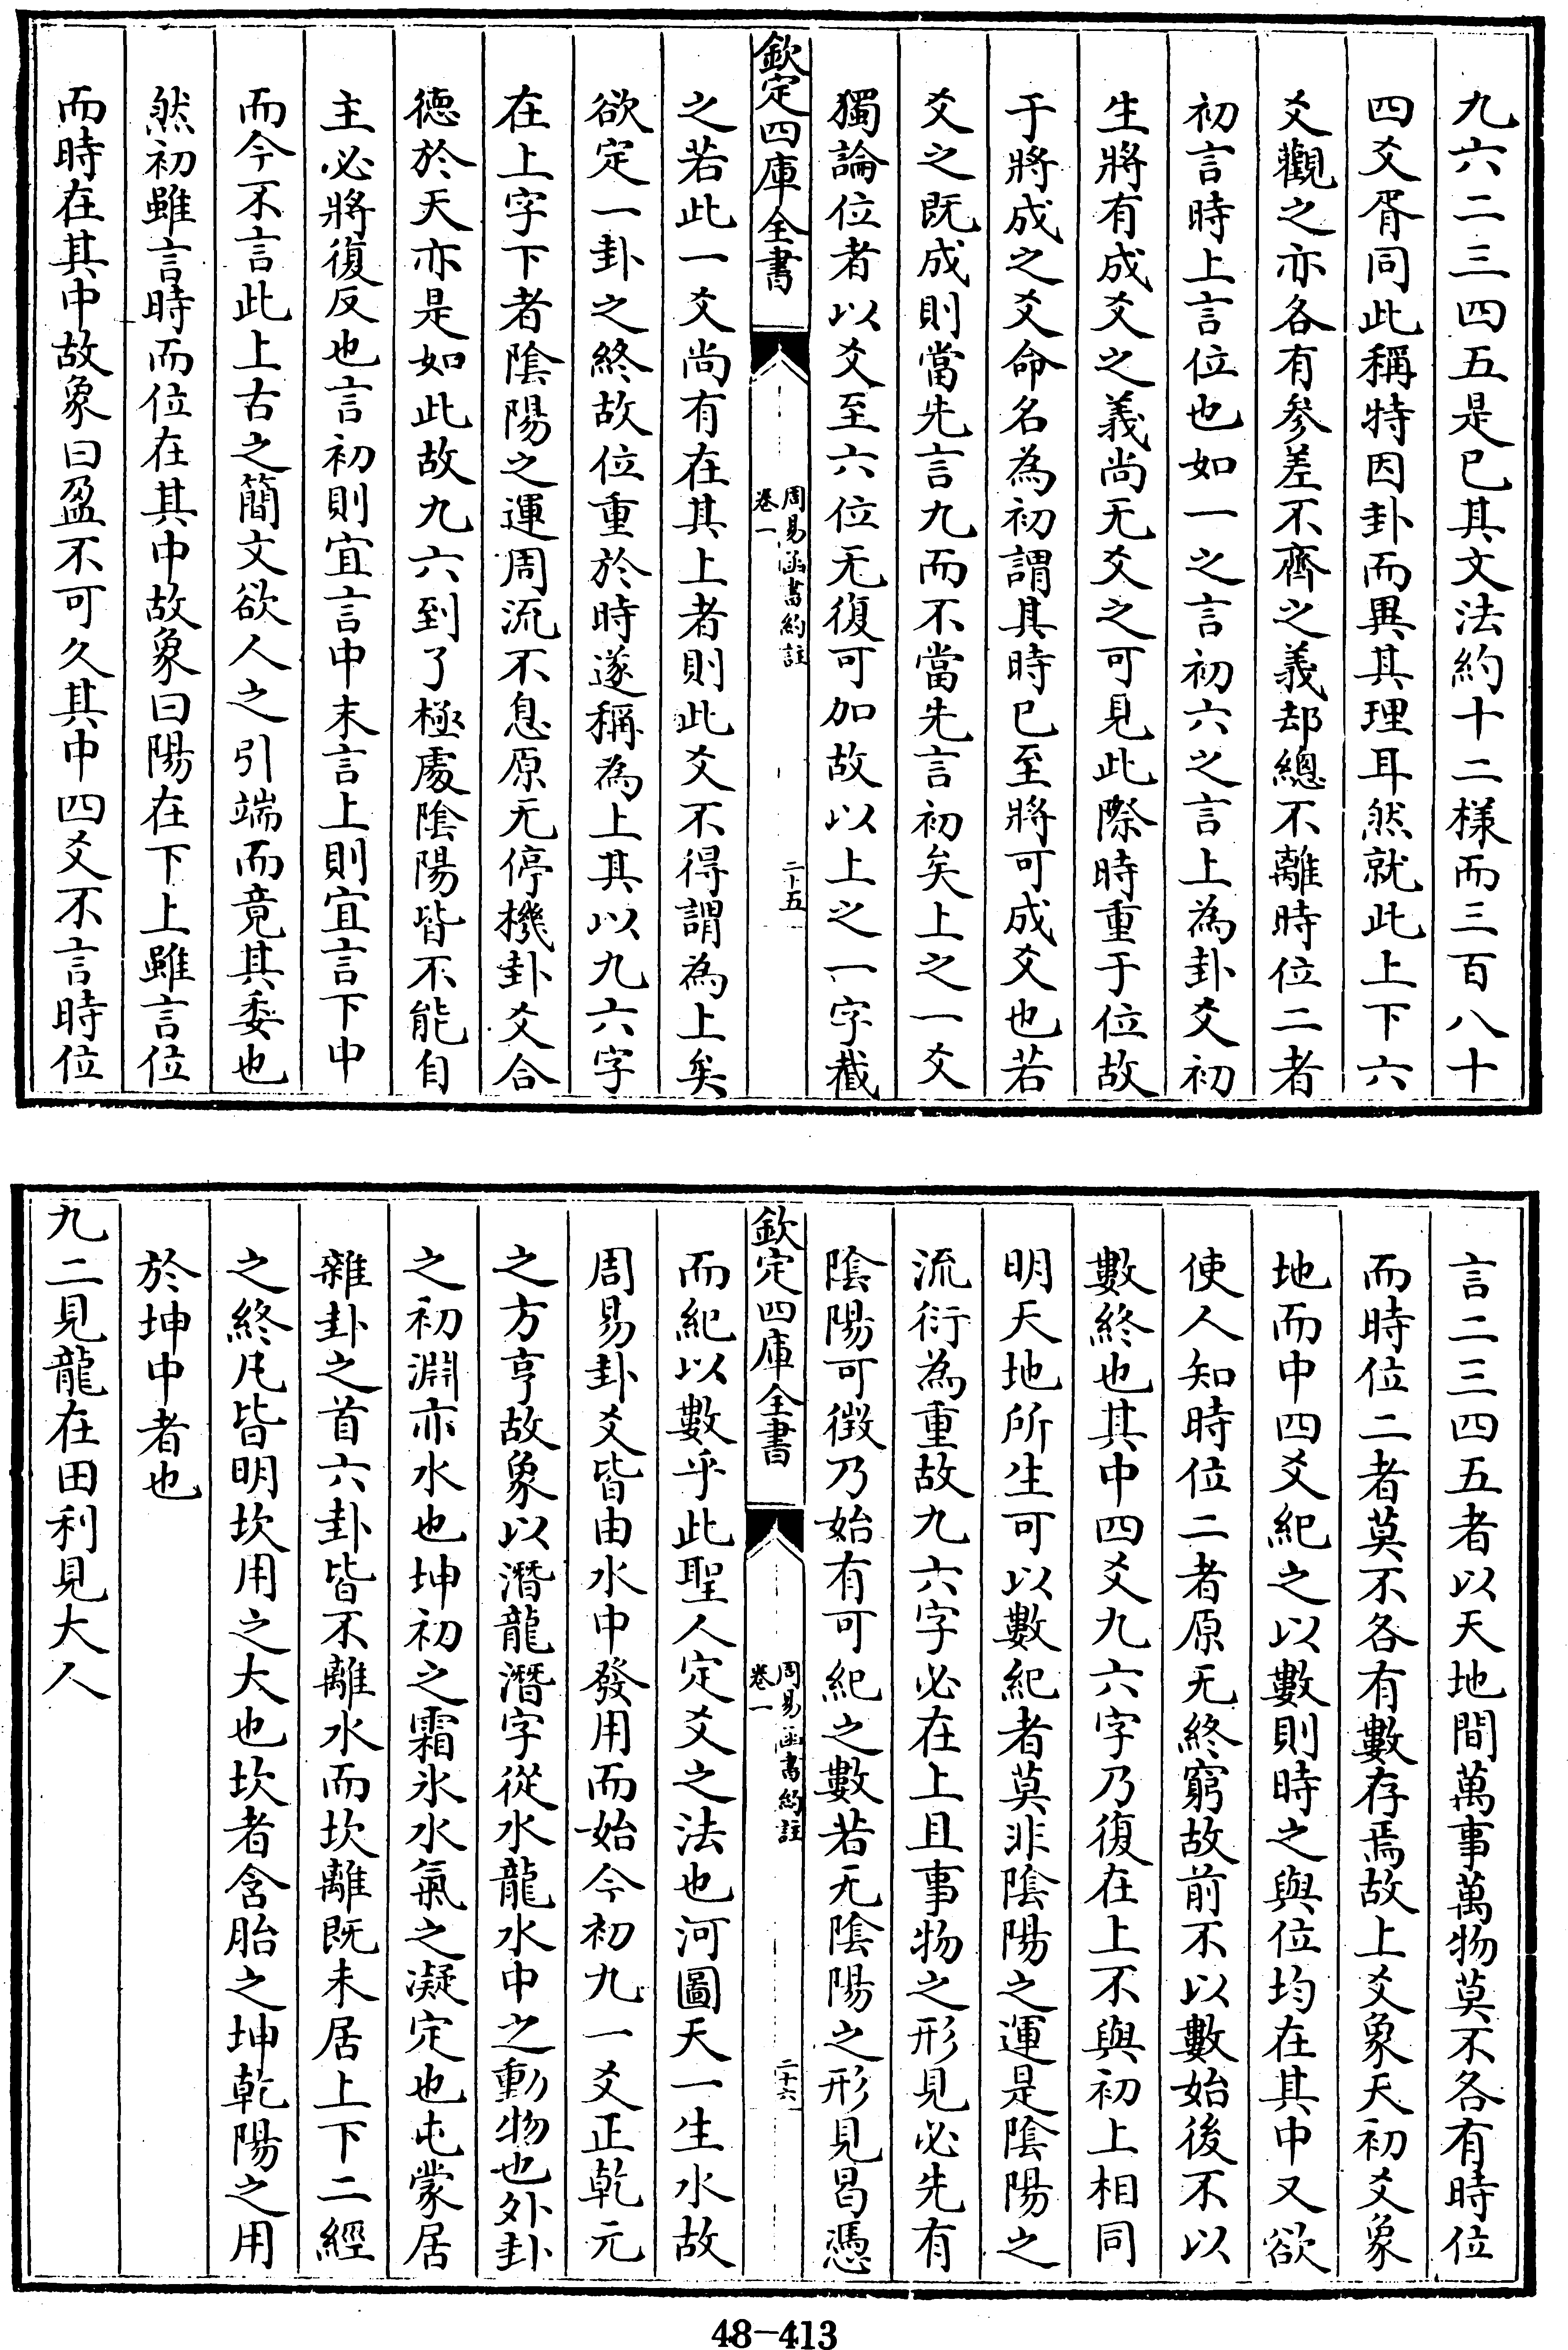 九六二三四五是已其文法約十二様而三百八十
四爻胥同此稱特因卦而異其理耳然就此上下六
爻觀之亦各有參差不齊之義却總不離時位二者
初言時上言位也如一之言初六之言上為卦爻初
生將有成爻之義尚无爻之可見此際時重于位故
于將成之爻命名為初謂其時已至將可成爻也若
爻之既成則當先言九而不當先言初矣上之一爻
獨論位者以爻至六位无復可加故以上之一字截
欽定四庫全書
周易函書約註
卷一
二十五
之若此一爻尚有在其上者則此爻不得謂為上矣
欲定一卦之終故位重於時遂稱為上其以九六字
在上字下者陰陽之運周流不息原无停機卦爻合
德於天亦是如此故九六到了極處陰陽皆不能自
主必將復反也言初則宜言中末言上則宜言下中
而今不言此上古之簡文欲人之引端而竟其委也
然初雖言時而位在其中故象曰陽在下上雖言位
而時在其中故象曰盈不可久其中四爻不言時位
言二三四五者以天地間萬事萬物莫不各有時位
而時位二者莫不各有數存焉故上爻象天初爻象
地而中四爻紀之以數則時之與位均在其中又欲
使人知時位二者原无終窮故前不以數始後不以
數終也其中四爻九六字乃復在上不與初上相同
明天地所生可以數紀者莫非陰陽之運是陰陽之
流衍為重故九六字必在上且事物之形見必先有
陰陽可徴乃始有可紀之數若无陰陽之形見曷憑
欽定四庫全書
周易函書約註
卷一
二十六
而紀以數乎此聖人定爻之法也河圖天一生水故
周易卦爻皆由水中發用而始今初九一爻正乾元
之方亨故象以潛龍潛字從水龍水中之動物也外卦
之初淵亦水也坤初之霜氷水氣之凝定也屯蒙居
雜卦之首六卦皆不離水而坎離既未居上下二經
之終凡皆明坎用之大也坎者含胎之坤乾陽之用
於坤中者也
九二見龍在田利見大人
48-413